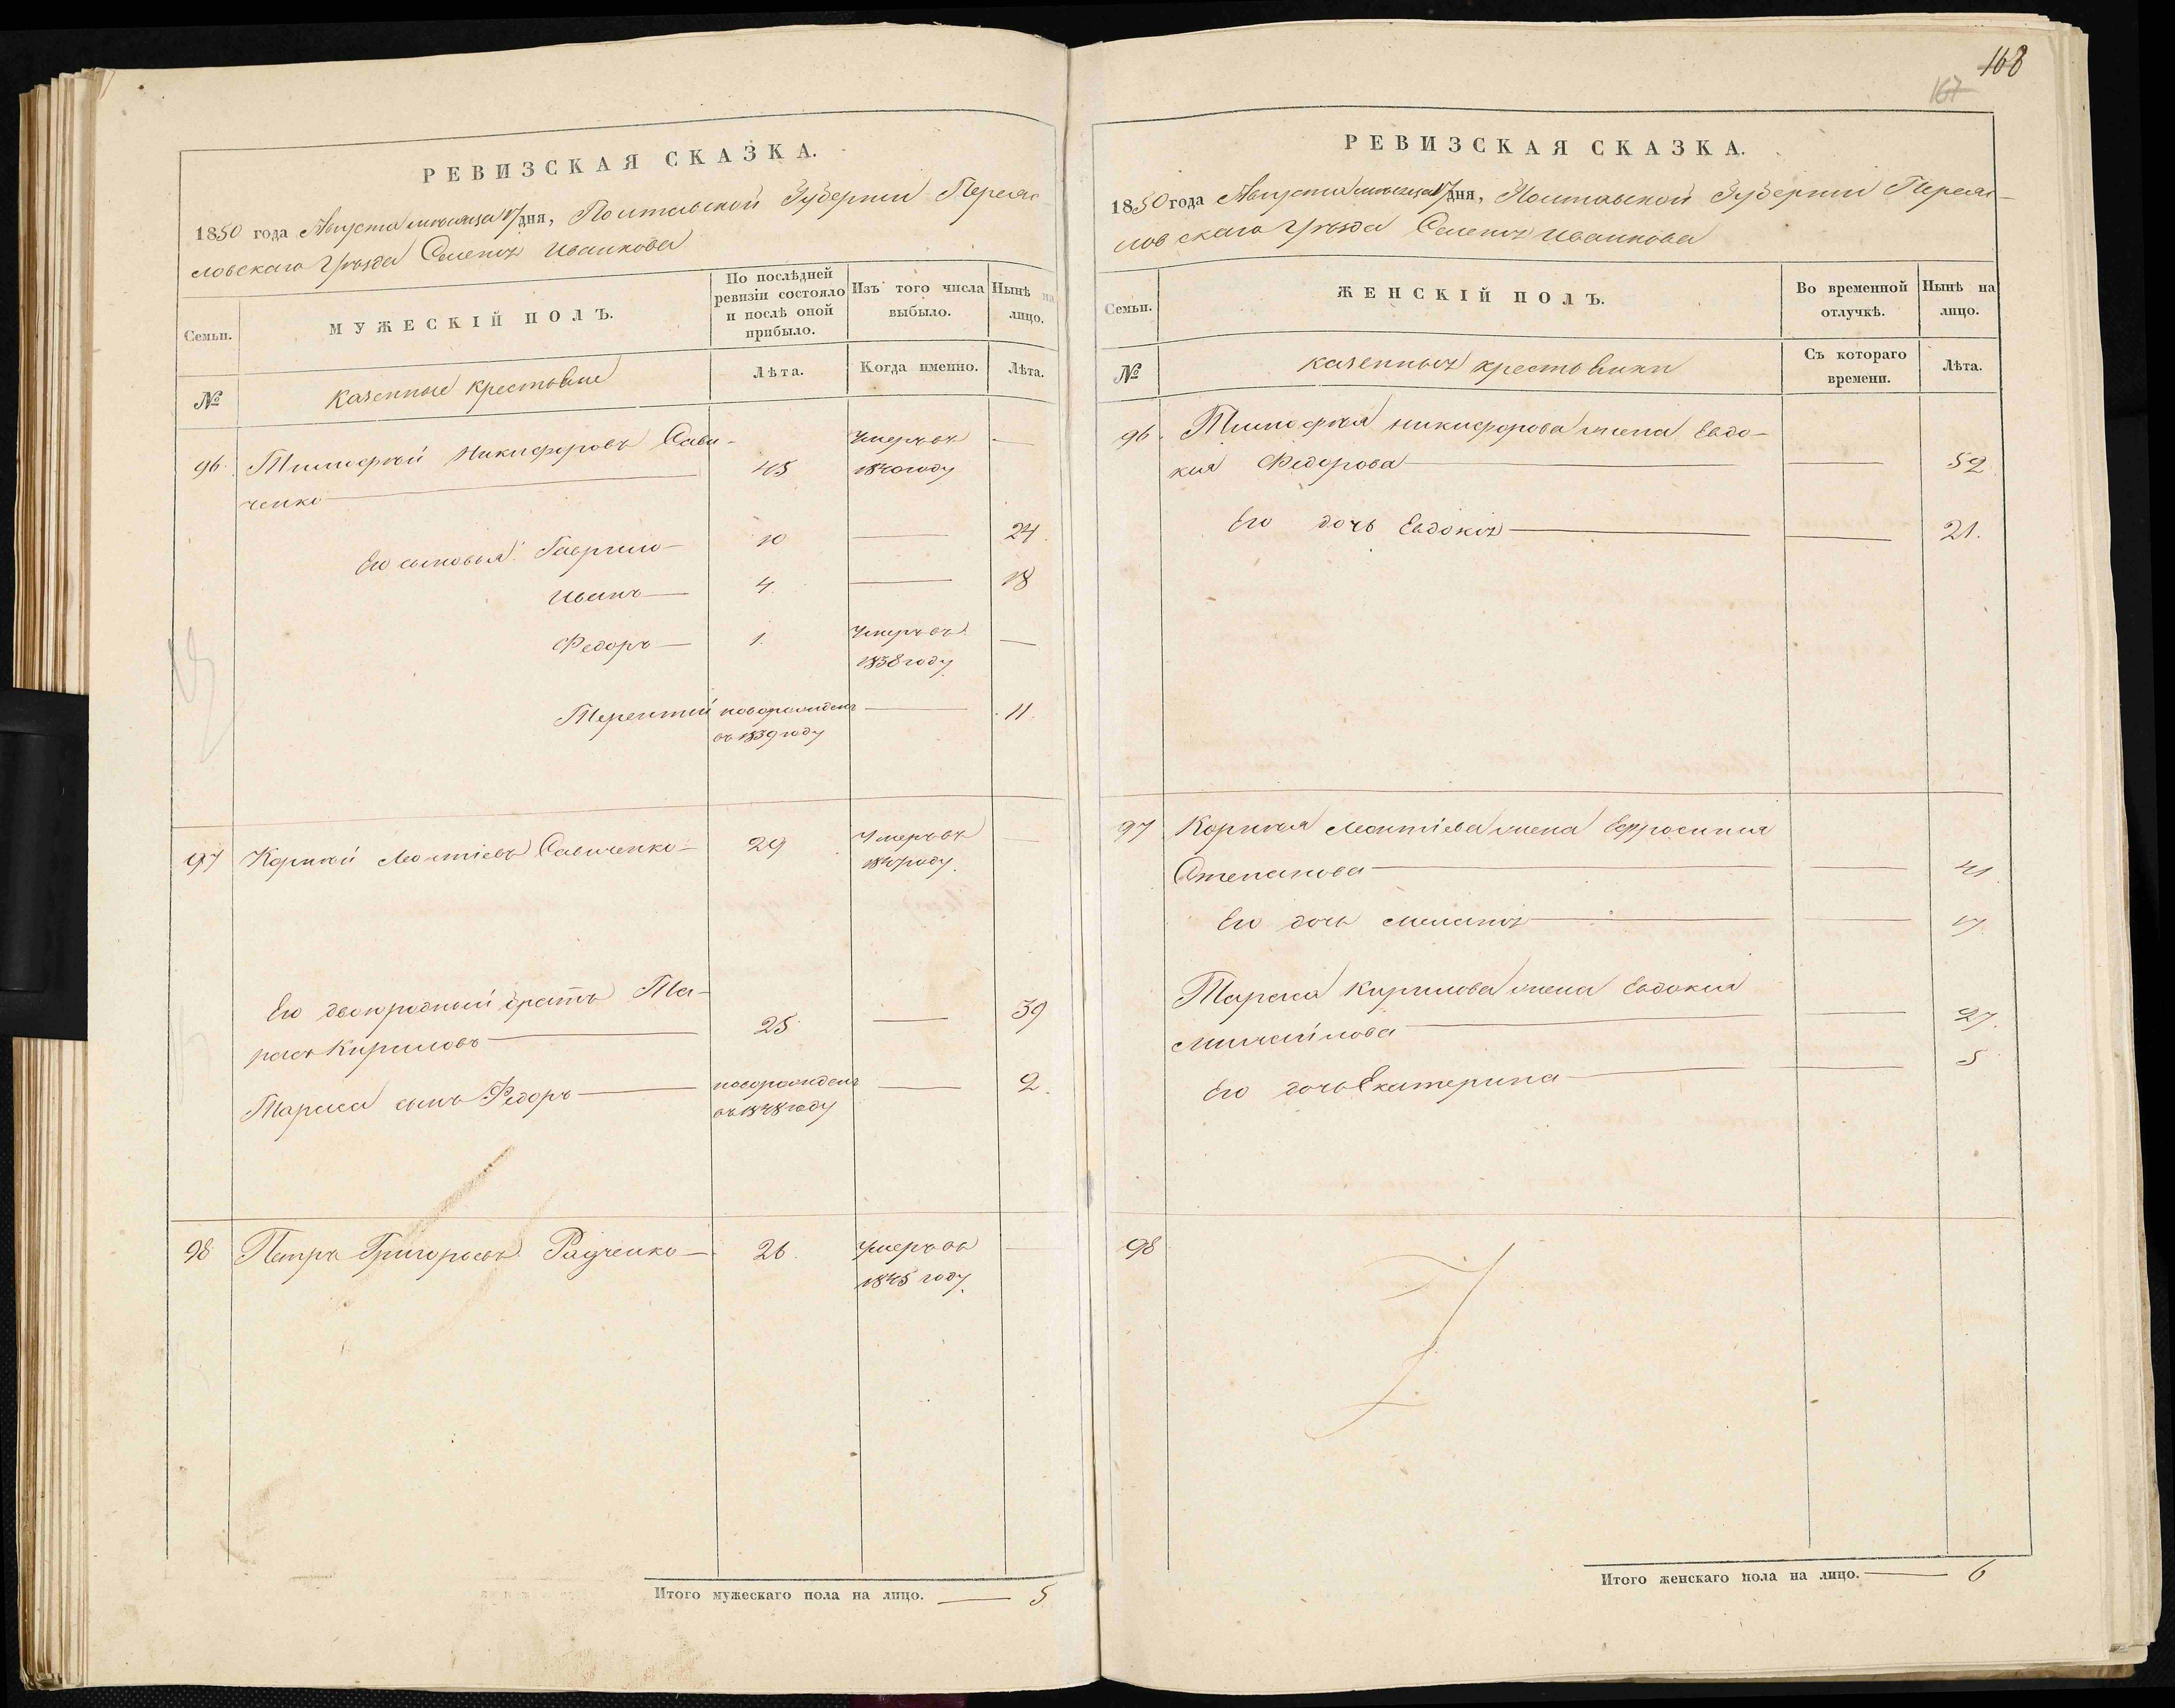 РЕВИЗСКАЯ СКАЗКА.
1850 года Августа месяца 17 дня, Полтавской Губернии Переяс
ловскаго Уѣзда Селенія Иванкова
Семьи.
МУЖЕСКІЙ ПОЛЪ.
По послѣдней
ревизіи состояло
и послѣ оной
прибыло.
Изъ того числа
выбыло.
Нынѣ на
лицо.
№
казенные крестьяне
Лѣта.
Когда именно.
Лѣта.
96. Тимофѣй Никифоровъ Сави-
ченко 45 Умеръ въ
1840 году —
Его сыновья: Гаврило 10 — 24.
Иванъ 4. — 18
Федоръ 1. Умеръ въ
1838 году —
Терентий новорожденъ
въ 1839 году — 11.
97 Корнѣй Леонтіевъ Савиченко 29 Умеръ въ
1847 году. —
Его двоюродный братъ Та-
расъ Кириловъ 25 — 39
Тараса сынъ Федоръ новорожденъ
въ 1848 году — 2.
98 Петръ Григорьевъ Радченко 26. Умеръ въ
1845 году. —
Итого мужескаго пола на лицо. — 5
168
167
РЕВИЗСКАЯ СКАЗКА.
1850 года Августа месяца 17 дня, Полтавской Губернии Переяс-
ловскаго Уѣзда Селенія Иванкова
Семьи.
ЖЕНСКІЙ ПОЛЪ.
Во временной
отлучкѣ.
Нынѣ на
лицо.
№
казенныхъ крестьянки
Съ котораго
времени.
Лѣта.
96. Тимофѣя Никифорова жена Евдо-
кия Федорова — 52
Его дочь Евдокія — 21.
97 Корнѣя Леонтіева жена Ефросиния
Степанова — 41
Его дочь Меланія — 17
Тараса Кирилова жена Евдокия
Михайлова — 27.
Его дочь Екатерина — 5
98
Итого женскаго пола на лицо. — 6